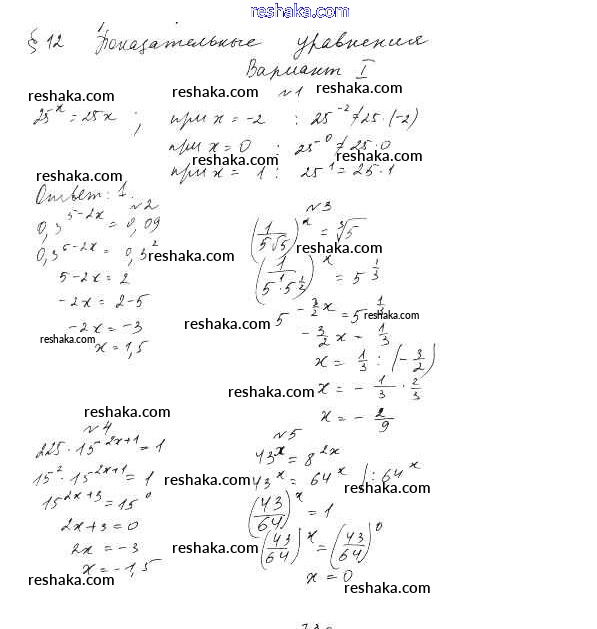 reshaka.com
§ 12 Показательные уравнения
Вариант I
reshaka.com reshaka.com reshaka.com
№1
25^x = 25x ; при x = -2 : 25^-2 ≠ 25·(-2)
при x = 0 : 25^-0 ≠ 25·0
reshaka.com reshaka.com
при x = 1 : 25^1 = 25·1
Ответ: 1.
№2
0,3^5-2x = 0,09
0,3^5-2x = 0,3^2
reshaka.com
5-2x = 2
-2x = 2-5
-2x = -3
reshaka.com
x = 1,5
№3
(1/5√5)^x = ∛5
reshaka.com
(1/5^1·5^1/2)^x = 5^1/3
reshaka.com
5^-3/2x = 5^1/3
reshaka.com
-3/2x = 1/3
x = 1/3 : (-3/2)
reshaka.com
x = -1/3 · 2/3
x = -2/9
reshaka.com
№4
225·15^2x+1 = 1
15^2·15^2x+1 = 1
reshaka.com
15^2x+3 = 15^0
2x+3 = 0
2x = -3
reshaka.com
x = -1,5
reshaka.com
№5
43^x = 8^2x
reshaka.com
43^x = 64^x /: 64^x
reshaka.com
(43/64)^x = 1
(43/64)^x = (43/64)^0
x = 0
reshaka.com